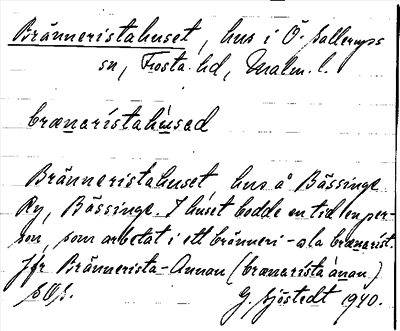 Bränneristahuset, hus i Ö. Sallerups
sn, Frosta hd, Malm. l.
brænaristahusad
Bränneristahuset, hus å Bässinge
Ry, Bässinge. I huset bodde en tid en per-
son, som arbetat i ett bränneri - sla brænarist.
Jfr Brännerista-Annan (brænarista ánan)
G. Sjöstedt 1940.